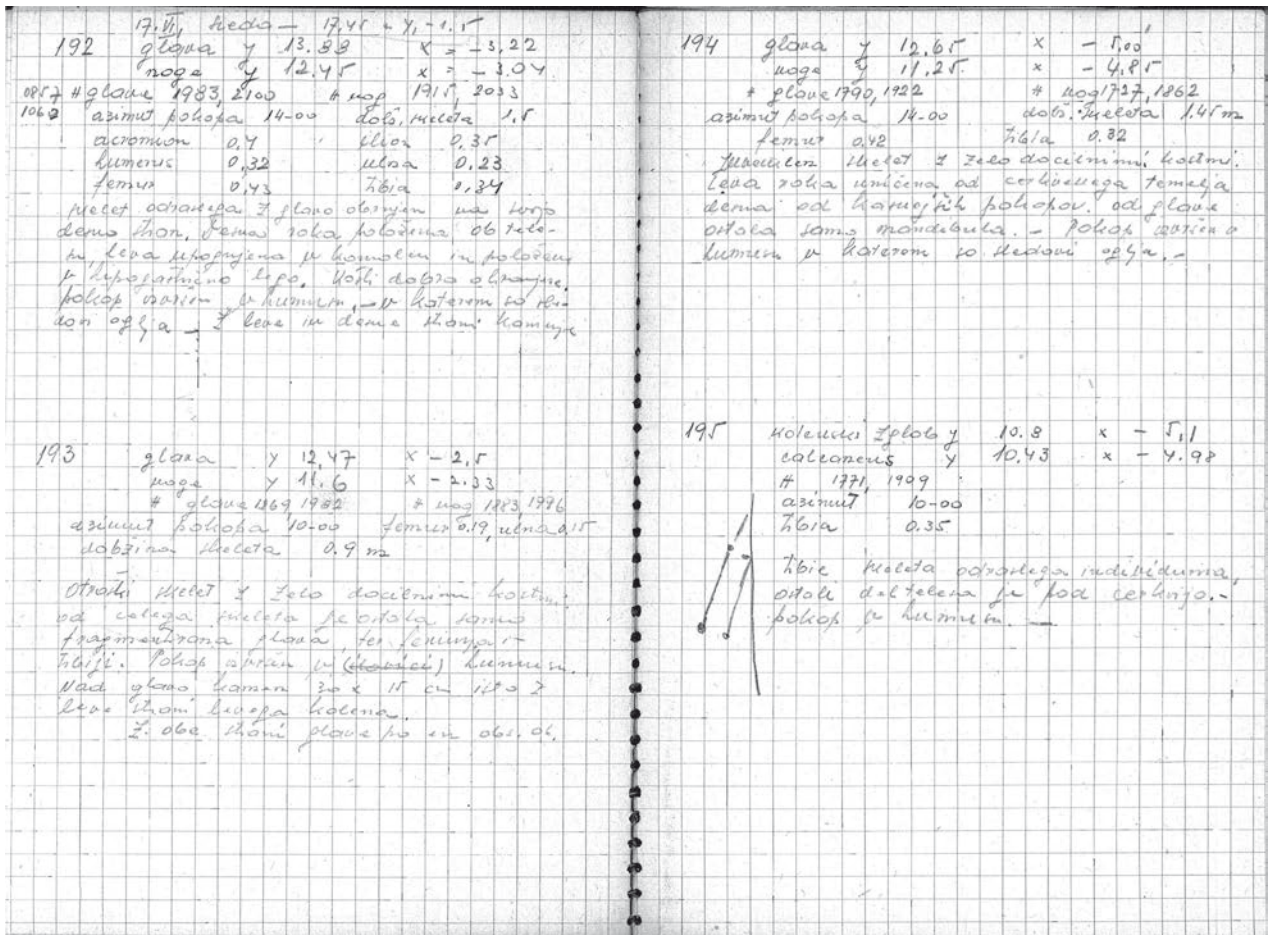 17. VI, sreda — 17,45 - y, -1.5
192 glava y 13.88 x = -3,22
noge y 12.45 x = -3.04
0857 # glave 1983, 2100 # nog 1915, 2033
1062 azimut pokopa 14-00 dolž. skeleta 1.5
acromion 0,4 " ilion 0.35
humerus 0,32 ulna 0.23
femur 0,43 tibia 0,34
skelet odraslega z glavo obrnjen na svojo
desno stran. Desna roka položena ob tele-
su, leva upognjena v komolcu in položena
v lego. Kosti dobro ohranjene,
pokop izvršen v humusu, — v katerem so sle-
dovi oglja — Z leve in desne strani kamenje
193 glava y 12,47 x - 2,5
noge y 11.6 x - 2.33
# glave 1869, 1982 # nog 1883, 1996
azimut pokopa 10-00 femur 0.19, ulna 0.15
dolžina skeleta 0.9 m
Otroški skelet z zelo kostmi
od celega skeleta je ostala samo
fragmentirana glava, ter femurja i-
tibiji. Pokop izvršen v () humusu.
Nad glavo kamen 30 x 15 cm isto z
leve strani levega kolena.
Z. obe strani glave po en obs. ob.
194 glava y 12,65 x - 5,00
noge y 11,25. x - 4,85
# glave 1790, 1922 # nog 1727, 1862
azimut pokopa 14-00 dolž. skeleta 1.45 m
femur 0,42 tibia 0.32
skelet z zelo kostmi.
Leva roka uničena od cerkvenega temelja
desna od kasnejših pokopov. od glave
ostala samo mandibula. — Pokop izvršen v
humusu v katerem so sledovi oglja. —
195 kolenski zglob y 10.8 x - 5,1
calcaneus y 10,43 x - 4.98
# 1771, 1909
azimut 10-00
tibia 0.35
tibie skeleta odraslega individuma,
ostali del telesa je pod cerkvijo. -
pokop v humusu. —